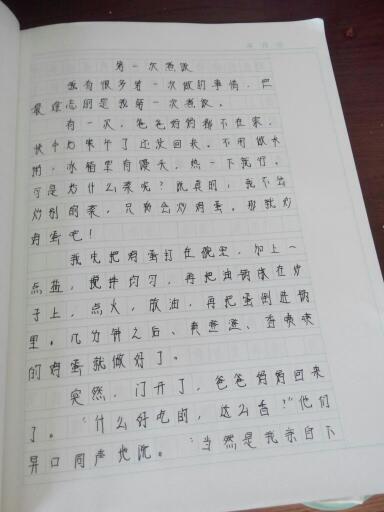 第一次煮饭
我有很多第一次做的事情，但
最难忘的是我第一次煮饭。
有一次，爸爸妈妈都不在家，
快中午了还没回来。不用做米
饭，冰箱里有馒头，热一下就行，
可是炒什么菜呢？说真的，我不会
炒别的菜，只会炒鸡蛋。那就炒
鸡蛋吧！
我先把鸡蛋打在碗里，加上一
点盐，搅拌均匀，再把油锅放在炉
子上，点火，放油，再把蛋倒进锅
里。几分钟之后、黄澄澄、香喷喷
的鸡蛋就做好了。
突然，门开了，爸爸妈妈回来
了。“什么好吃的，这么香？”他们
异口同声地说。“当然是我亲自下